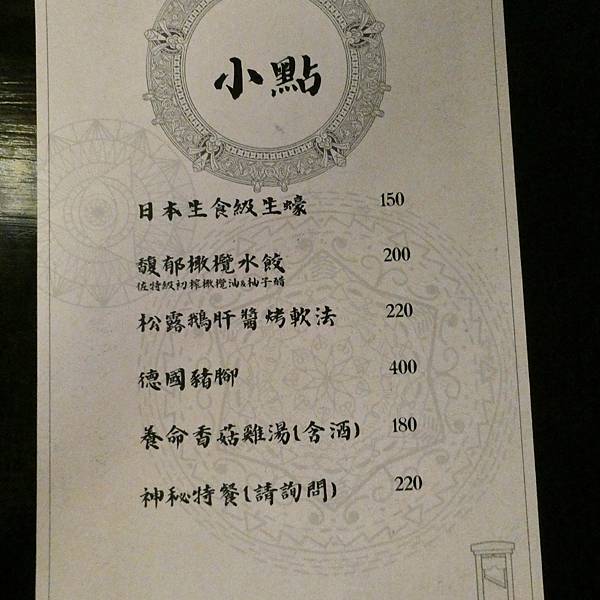 小點
日本生食級生蠔 150
馥郁橄欖水餃 200
佐特級初榨橄欖油&柚子醋
松露鵝肝醬烤軟法 220
德國豬腳 400
養命香菇雞湯(含酒) 180
神秘特餐(請詢問) 220